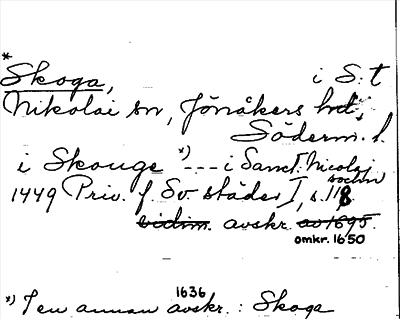 *
Skoga, i S:t
Nikolai sn, Jönåkers hd,
Söderm. l.
i Skouge *) --- i Sanct. Nicolai sochn
1449 Priv. f. Sv. städer I, s. 118
vidim. avskr. av 1695.
omkr. 1650
*) I en annan avskr. 1636 : Skoga